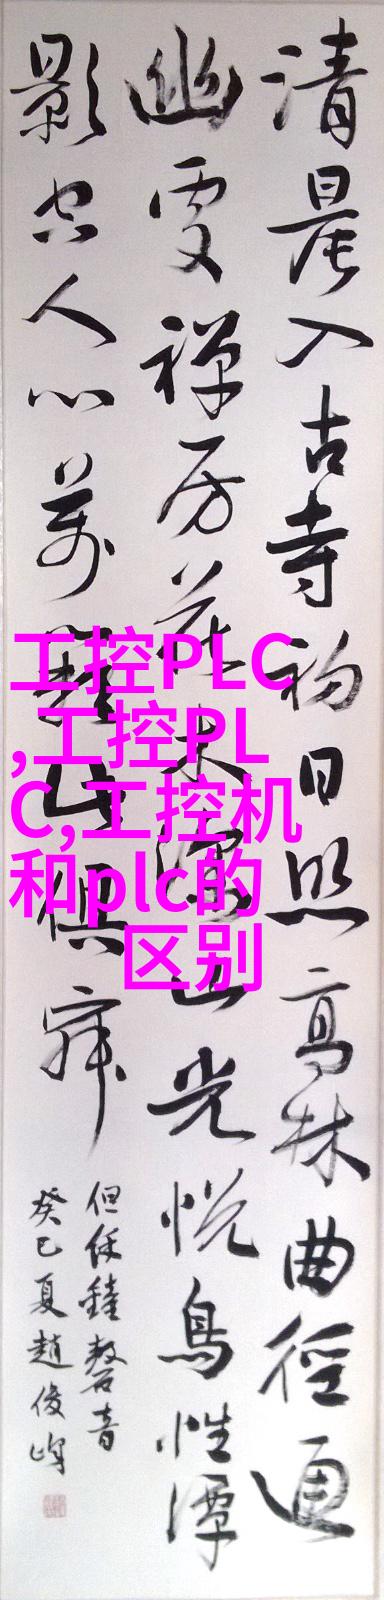 清晨入古寺初日照高林曲徑通
幽處禪房花木深山光悅鳥性潭
影空人心萬籟此俱寂
但餘鐘磬音
癸巳夏趙俊峰
工控PLC
,工控PL
C,工控机
和plc的
区别